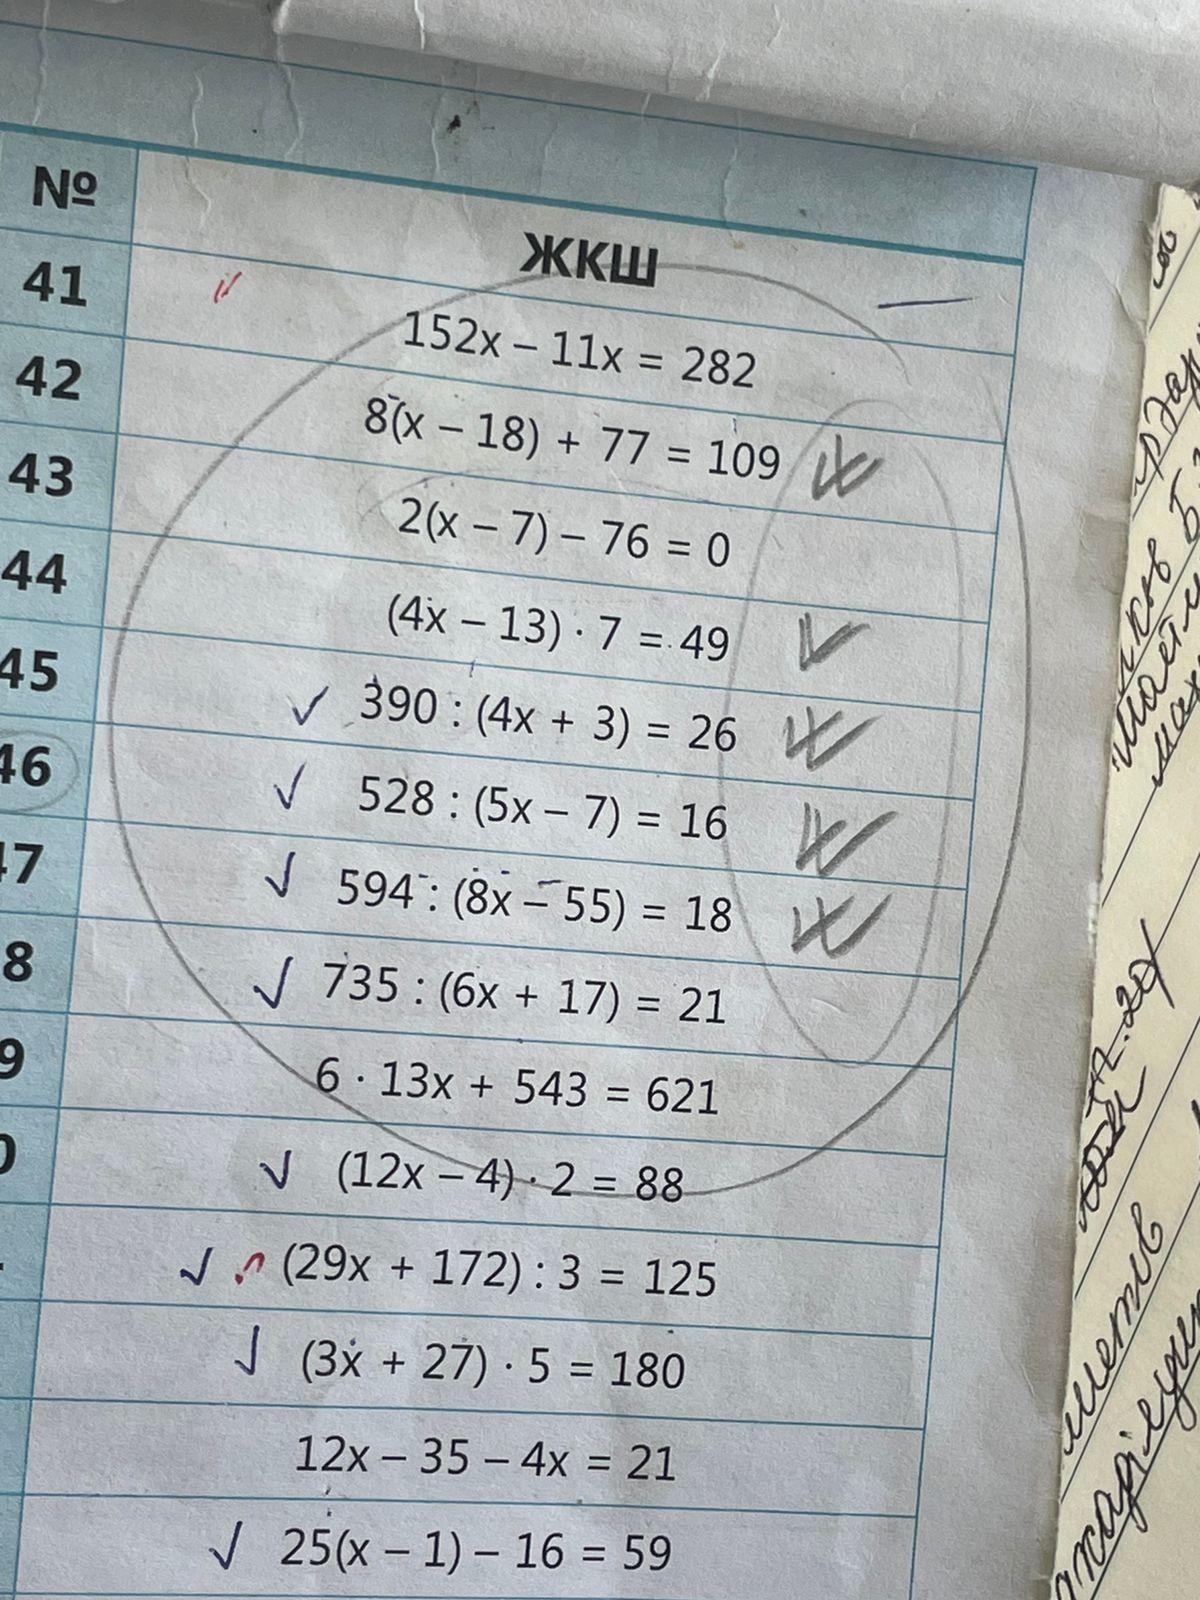 № ЖКШ
41 152x – 11x = 282
42 8(x – 18) + 77 = 109
43 2(x – 7) – 76 = 0
44 (4x – 13) · 7 = 49
45 390 : (4x + 3) = 26
46 528 : (5x – 7) = 16
47 594 : (8x – 55) = 18
8 735 : (6x + 17) = 21
9 6 · 13x + 543 = 621
0 (12x – 4) · 2 = 88
(29x + 172) : 3 = 125
(3x + 27) · 5 = 180
12x – 35 – 4x = 21
25(x – 1) – 16 = 59